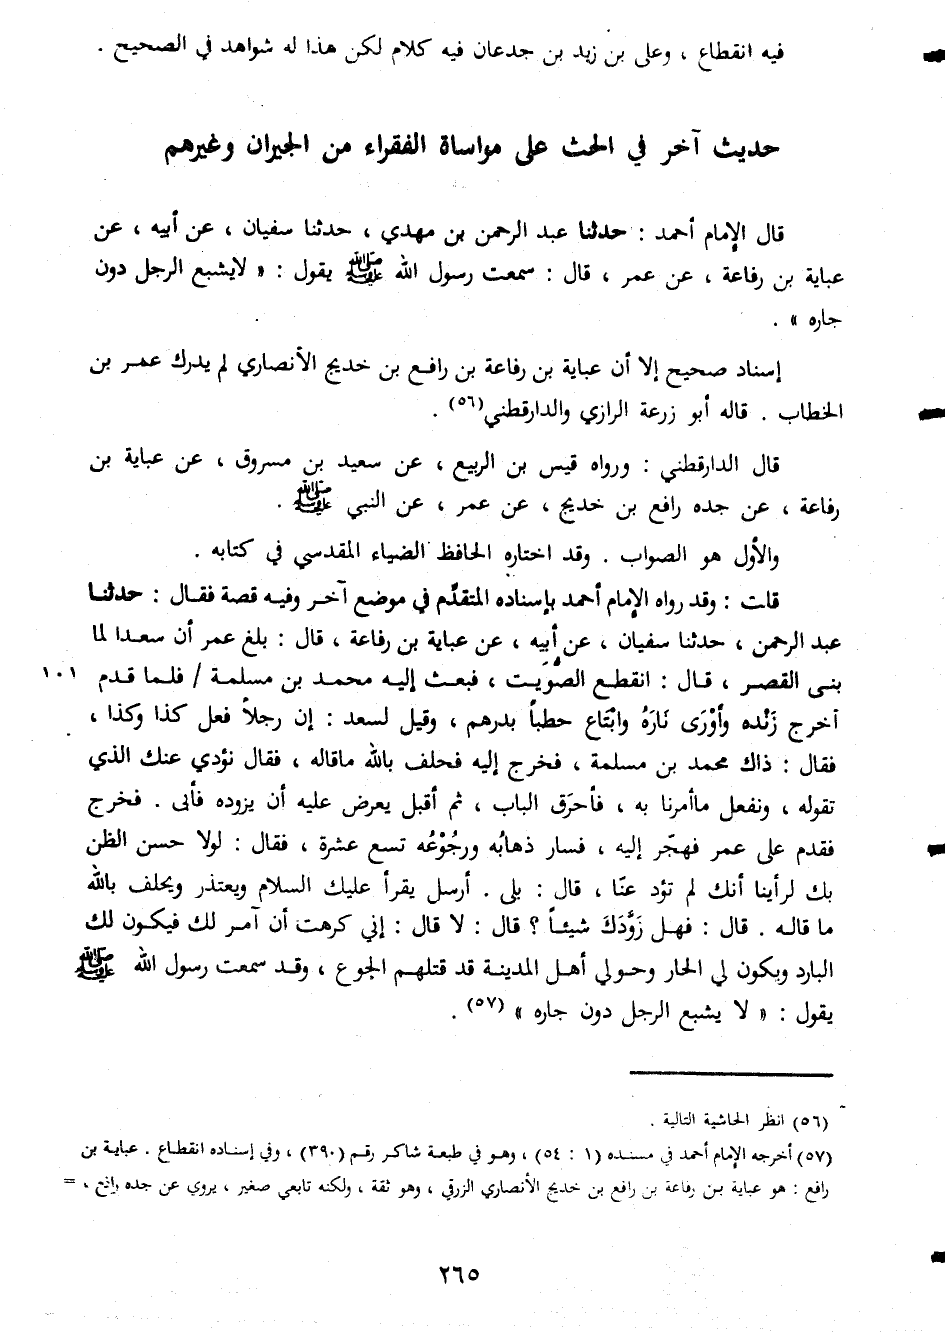 فيه انقطاع ، وعلى بن زيد بن جدعان فيه كلام لكن هذا له شواهد في الصحيح .
حديث آخر في الحث على مواساة الفقراء من الجيران وغيرهم
قال الإمام أحمد : حدثنا عبد الرحمن بن مهدي ، حدثنا سفيان ، عن أبيه ، عن
عباية بن رفاعة ، عن عمر ، قال : سمعت رسول الله ﷺ يقول : « لايشبع الرجل دون
جاره » .
إسناد صحيح إلا أن عباية بن رفاعة بن رافع بن خديج الأنصاري لم يدرك عمر بن
الخطاب . قاله أبو زرعة الرازي والدارقطني(٥٦) .
قال الدارقطني : ورواه قيس بن الربيع ، عن سعيد بن مسروق ، عن عباية بن
رفاعة ، عن جده رافع بن خديج ، عن عمر ، عن النبي ﷺ .
والأول هو الصواب . وقد اختاره الحافظ الضياء المقدسي في كتابه .
قلت : وقد رواه الإمام أحمد بإسناده المتقدّم في موضع آخر وفيه قصة فقال : حدثنا
عبد الرحمن ، حدثنا سفيان ، عن أبيه ، عن عباية بن رفاعة ، قال : بلغ عمر أن سعدا لما
بنى القصر ، قال : انقطع الصُّوَيت ، فبعث إليه محمد بن مسلمة / فلما قدم ١٠١
أخرج زَنْده وأوْرَى نَارَهُ وابْتَاع حطباً بدرهم ، وقيل لسعد : إن رجلاً فعل كذا وكذا ،
فقال : ذاك محمد بن مسلمة ، فخرج إليه فحلف بالله ماقاله ، فقال نؤدي عنك الذي
تقوله ، ونفعل ماأمرنا به ، فأحرَق الباب ، ثم أقبل يعرض عليه أن يزوده فأبى . فخرج
فقدم على عمر فهجّر إليه ، فسار ذهابُه ورجُوْعُه تسع عشرة ، فقال : لولا حسن الظن
بك لرأينا أنك لم تؤد عنّا ، قال : بلى . أرسل يقرأ عليك السلام ويعتذر ويحلف بالله
ما قاله . قال : فهل زَوَّدَكَ شيئاً ؟ قال : لا قال : إني كرهت أن آمر لك فيكون لك
البارد ويكون لي الحار وحولي أهل المدينة قد قتلهم الجوع ، وقد سمعت رسول الله ﷺ
يقول : « لا يشبع الرجل دون جاره » (٥٧) .
(٥٦) انظر الحاشية التالية .
(٥٧) أخرجه الإمام أحمد في مسنده (١ : ٥٤) ، وهو في طبعة شاكر رقم (٣٩٠) ، وفي إسناده انقطاع . عباية بن
رافع : هو عباية بن رفاعة بن رافع بن خديج الأنصاري الزرقي ، وهو ثقة ، ولكنه تابعي صغير ، يروي عن جده رافع ، =
٢٦٥